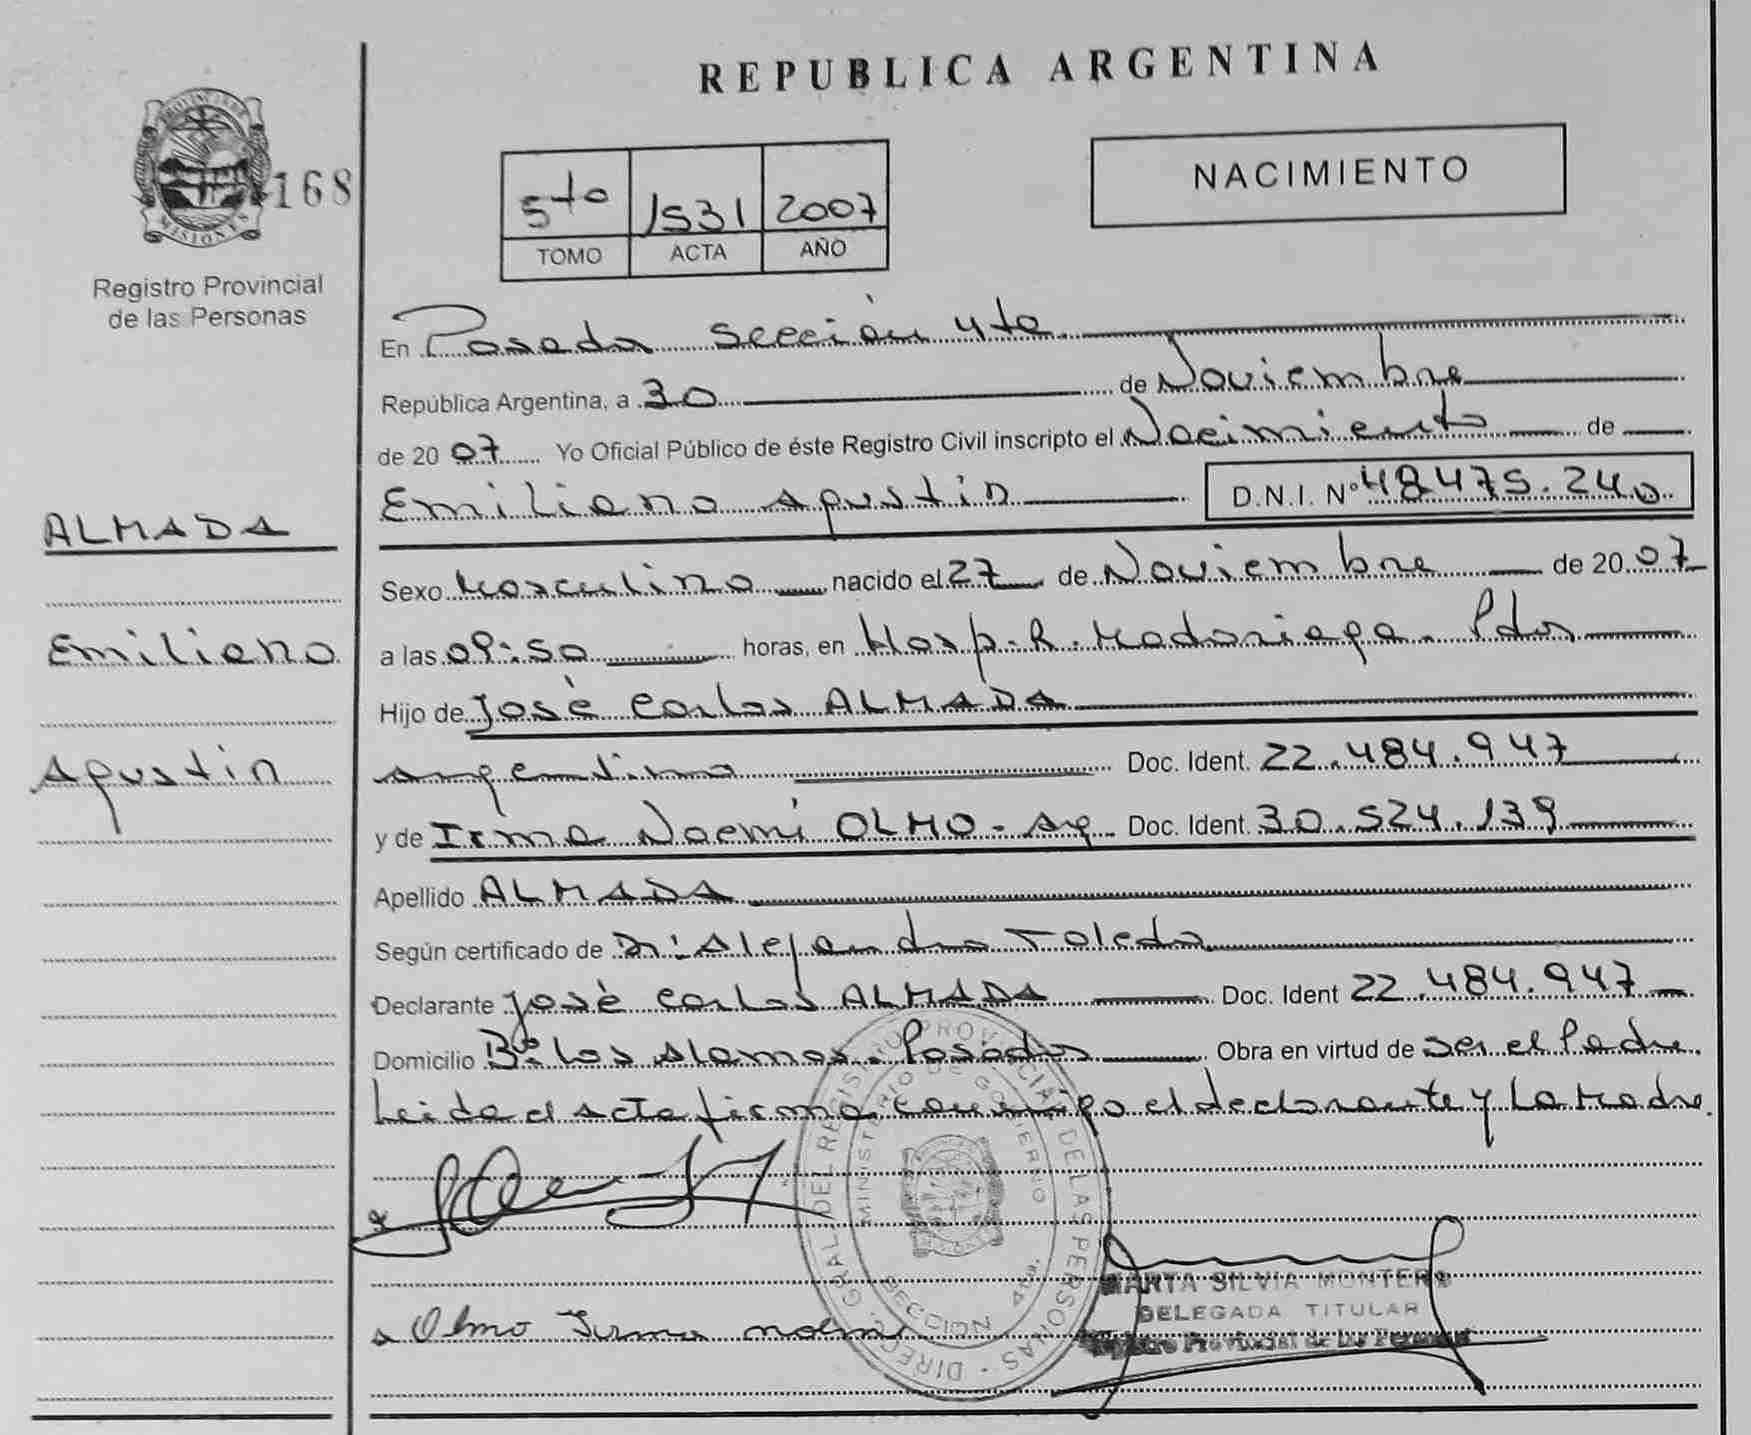 REPUBLICA ARGENTINA
PROVINCIA DE
MISIONES
168
Registro Provincial
de las Personas
5to 1531 2007
TOMO ACTA AÑO
NACIMIENTO
En Posadas Sección 4ta
República Argentina, a 30 de Noviembre
de 2007 Yo Oficial Público de éste Registro Civil inscripto el Nacimiento de
Emiliano Agustin D.N.I. Nº 48475.240
ALMADA
Emiliano
Agustin
Sexo Masculino nacido el 27 de Noviembre de 2007
a las 09:50 horas, en Hosp. R. Madariaga. Pdas
Hijo de José Carlos ALMADA
argentino Doc. Ident. 22.484.947
y de Irma Noemí OLMO - Arg Doc. Ident. 30.524.139
Apellido ALMADA
Según certificado de Dr: Alejandro Toledo
Declarante José Carlos ALMADA Doc. Ident 22.484.947
Domicilio Bº Los Alamos. Posadas Obra en virtud de ser el Padre.
Leida el acta firma conmigo el declarante y La Madre.
DIRECC. GRAL. DEL REGISTRO PROVINCIAL DE LAS PERSONAS
MINISTERIO DE GOBIERNO
SECCION 4ta.
MARTA SILVIA MONTERO
DELEGADA TITULAR
Registro Provincial de las Personas
Olmo Irma noemi